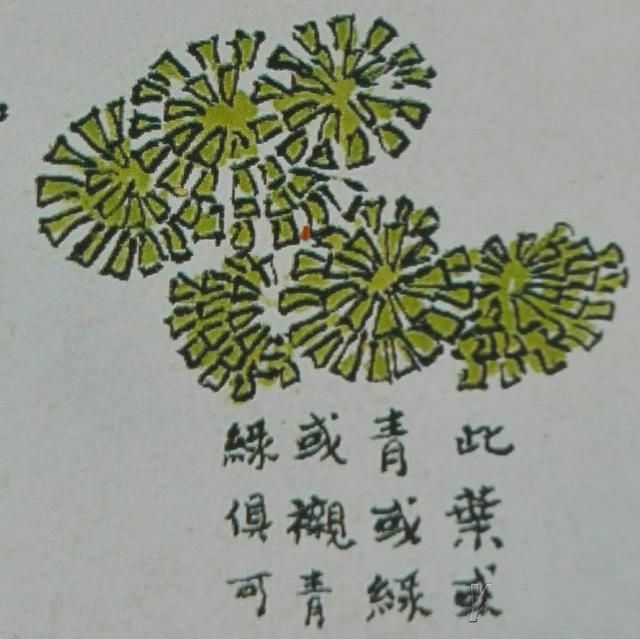 此葉或
青或綠
或襯青
綠俱可